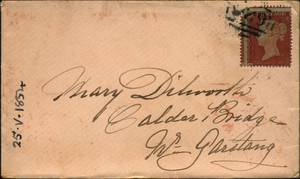 Mary Dilworth
Calder Bridge
Nr. Garstang
25.V.1854